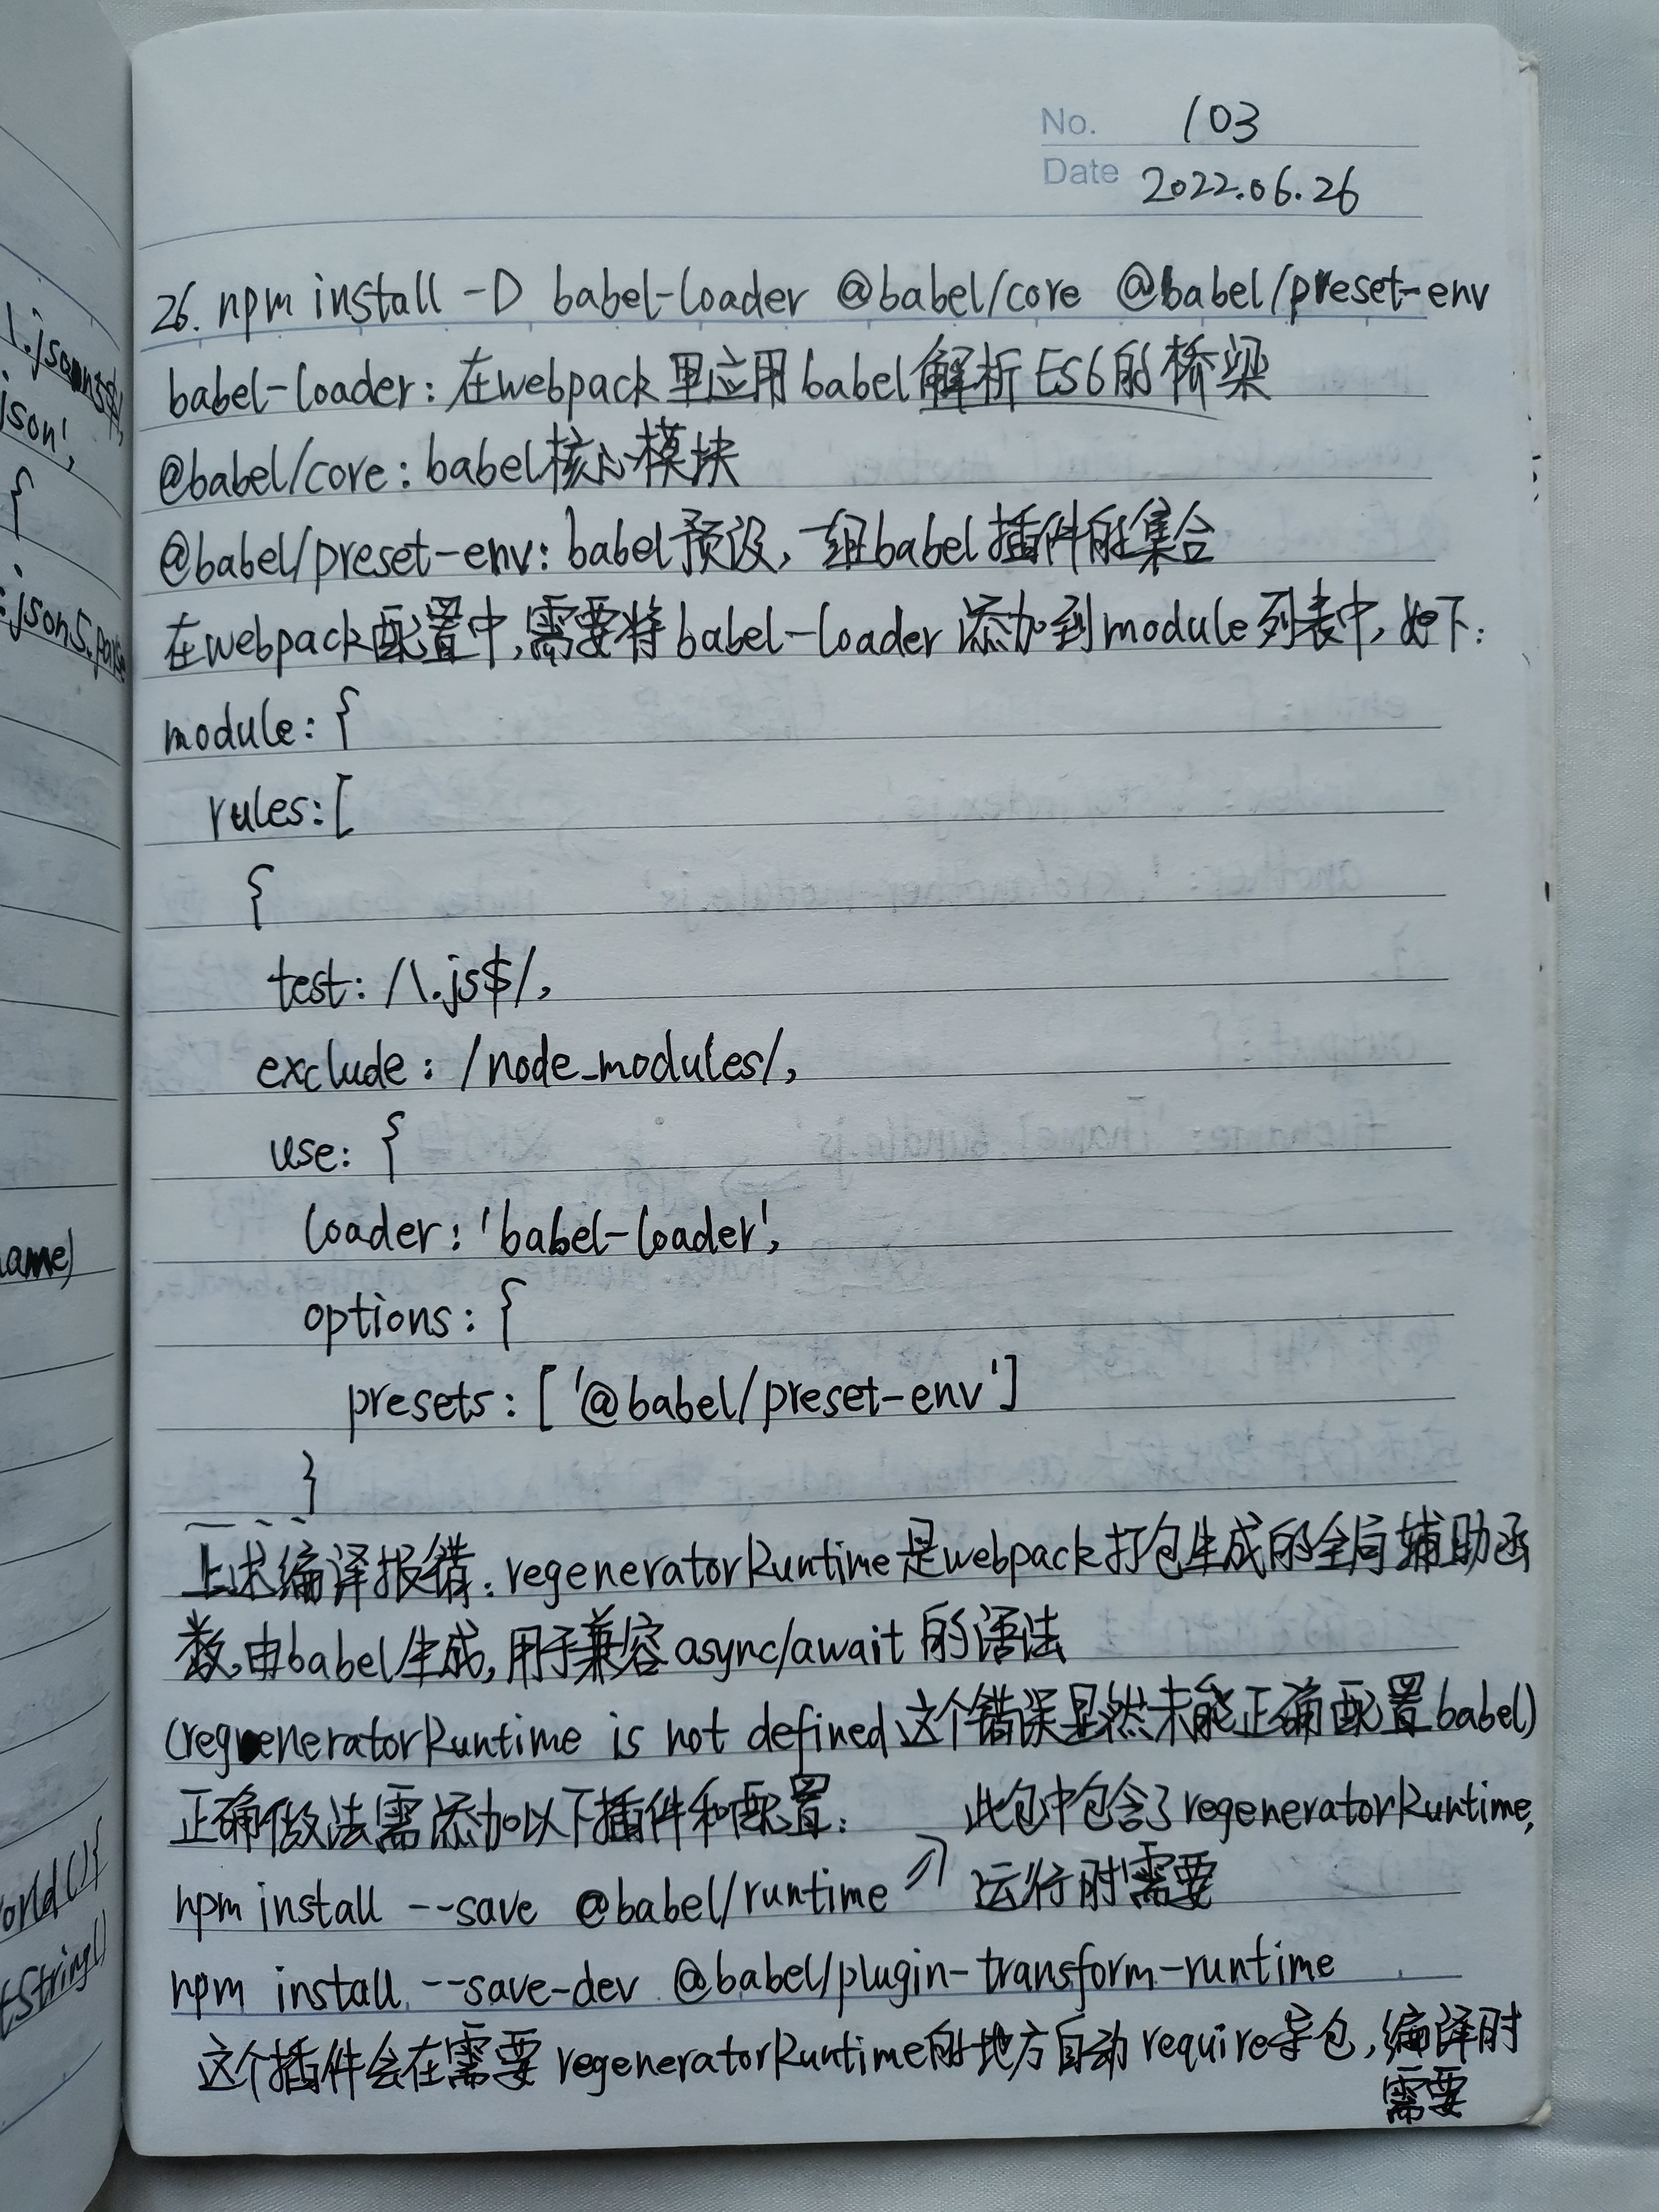 No. 103
Date 2022.06.26
26. npm install -D babel-loader @babel/core @babel/preset-env
babel-loader: 在webpack里应用babel解析ES6的桥梁
@babel/core: babel核心模块
@babel/preset-env: babel预设, 一组babel插件的集合
在webpack配置中,需要将babel-loader添加到module列表中,如下:
module: {
rules: [
{
test: /\.js$/,
exclude: /node_modules/,
use: {
loader: 'babel-loader',
options: {
presets: ['@babel/preset-env']
}
上述编译报错: regeneratorRuntime是webpack打包生成的全局辅助函
数,由babel生成,用于兼容async/await的语法
(regeneratorRuntime is not defined这个错误显然未能正确配置babel)
正确做法需添加以下插件和配置:
此包中包含了regeneratorRuntime,
npm install --save @babel/runtime => 运行时需要
npm install --save-dev @babel/plugin-transform-runtime
这个插件会在需要regeneratorRuntime的地方自动require导包,编译时
需要
json',
{
ame)